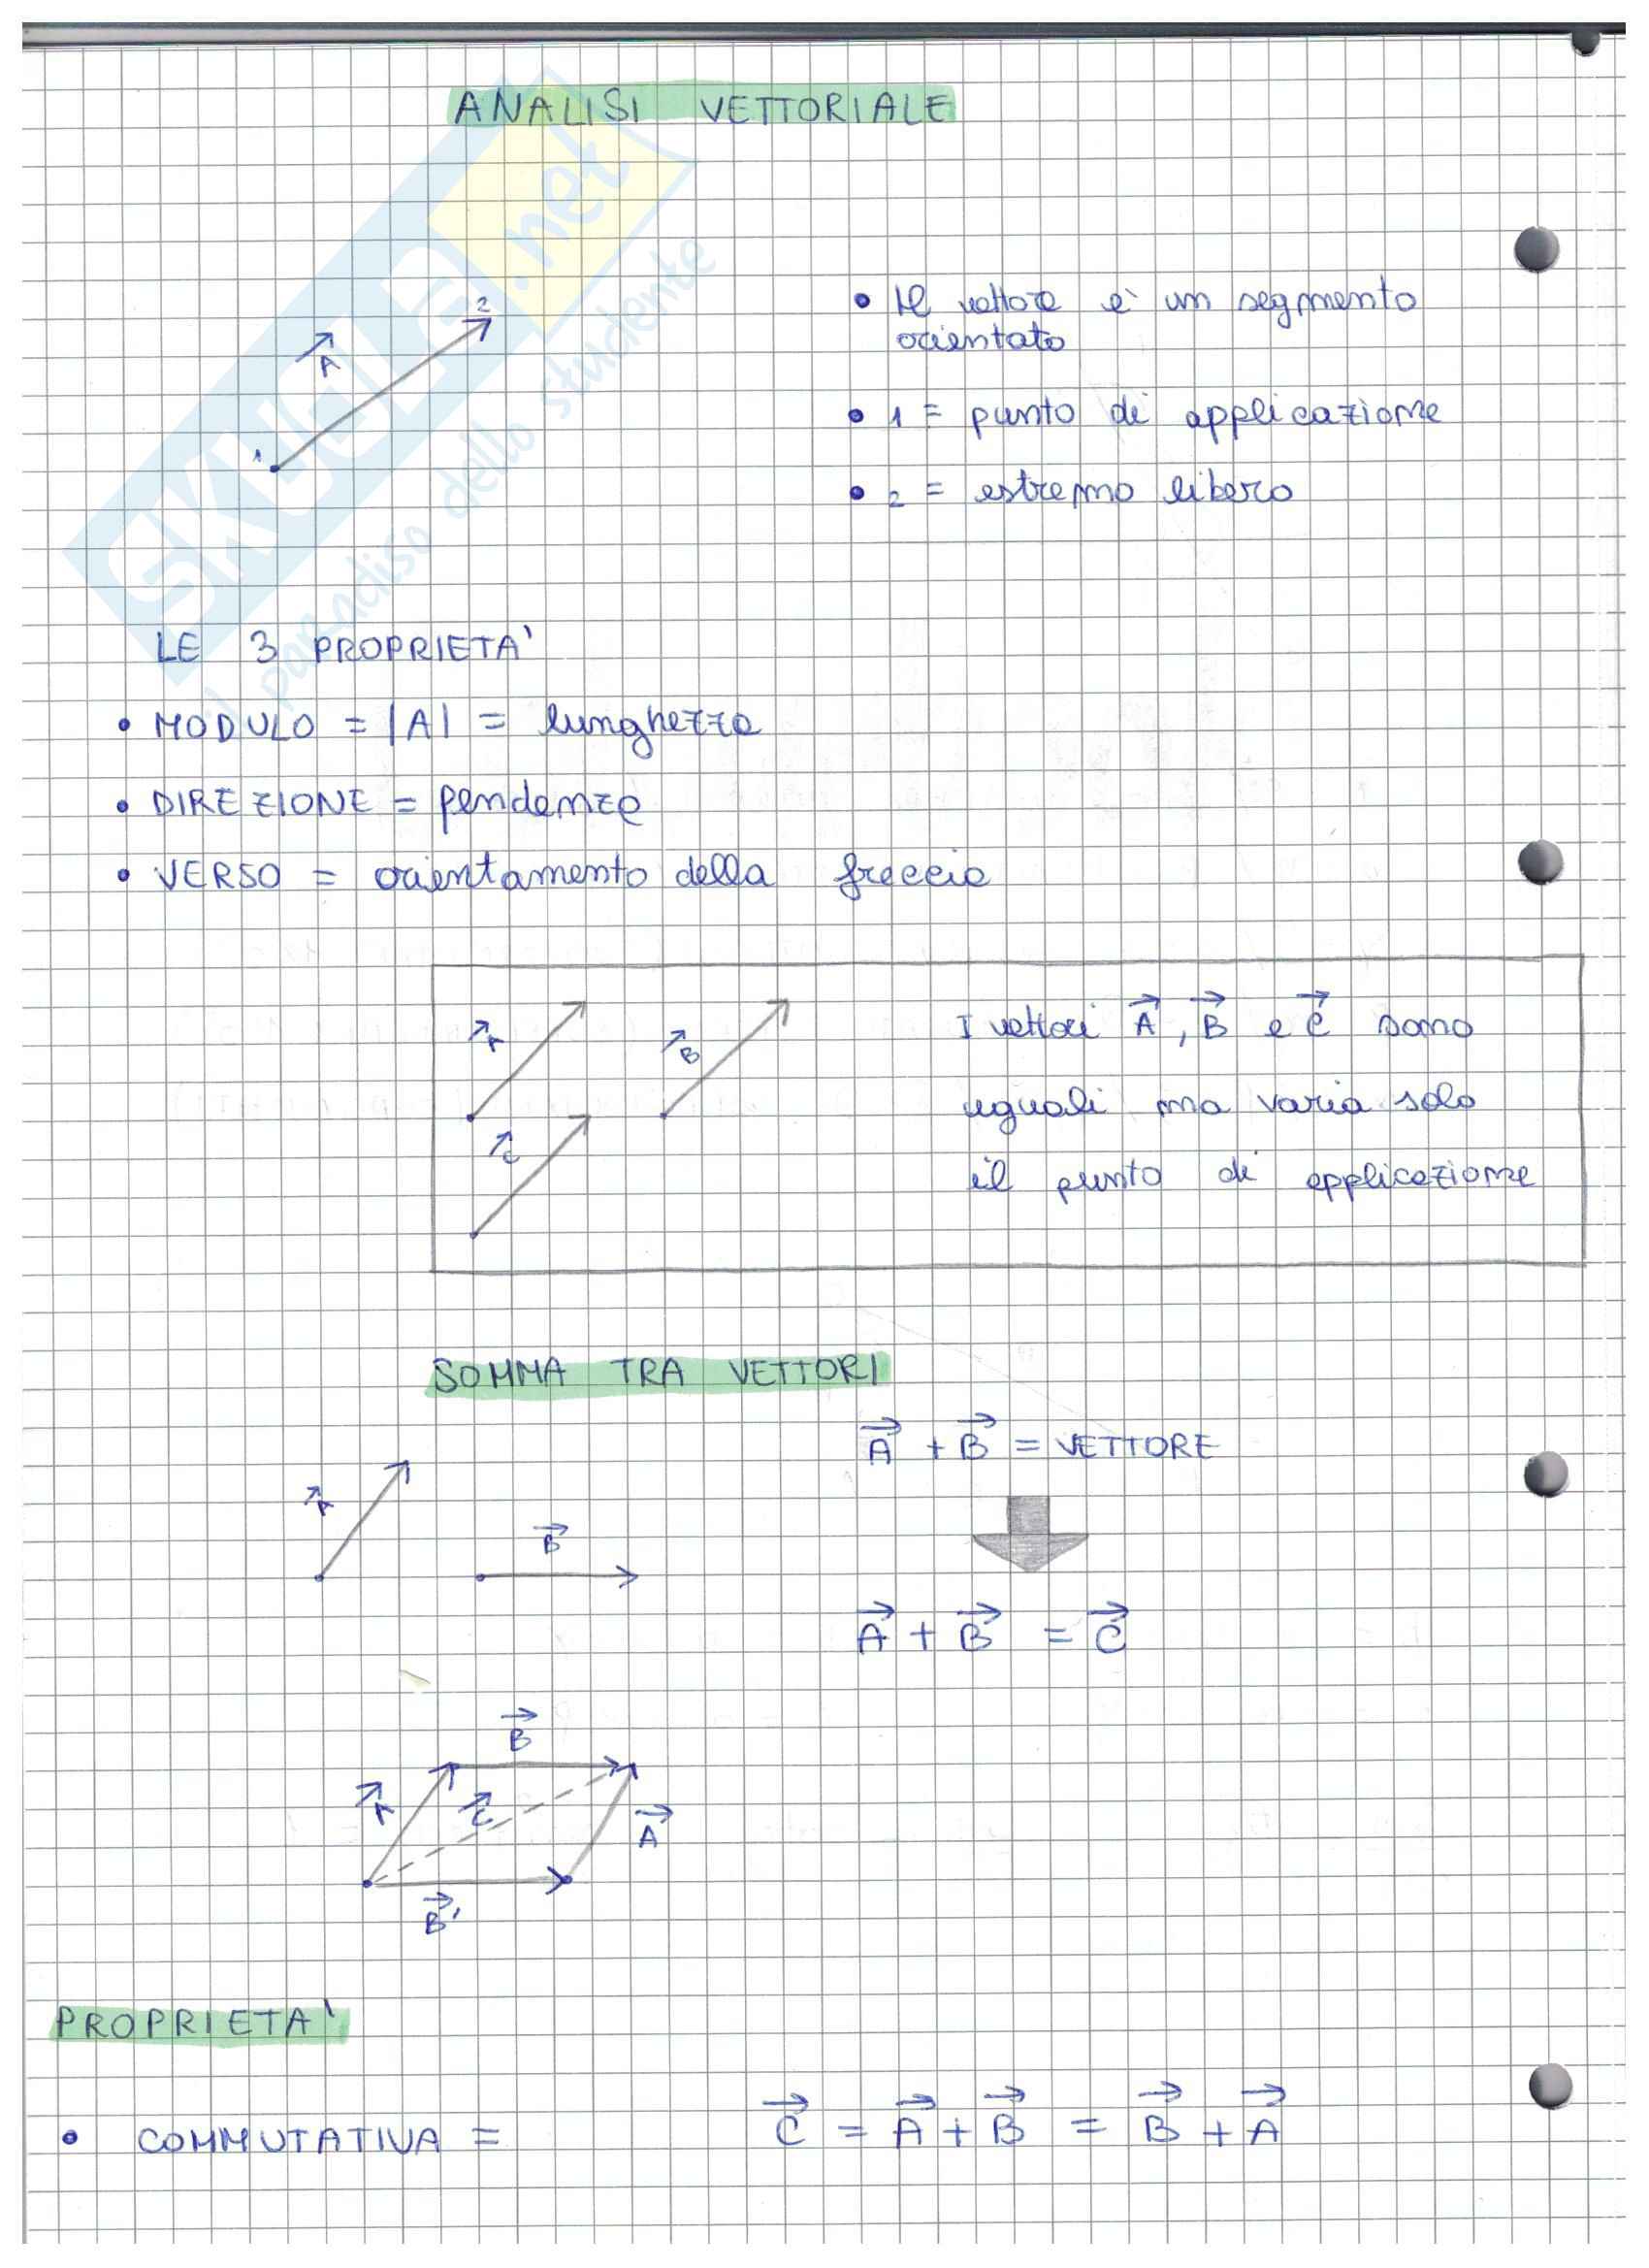 ANALISI VETTORIALE
SKUOLA.net
il paradiso dello studente
A
2
1
• Il vettore è un segmento
orientato
• 1 = punto di applicazione
• 2 = estremo libero
LE 3 PROPRIETA'
• MODULO = |A| = lunghezza
• DIREZIONE = pendenza
• VERSO = orientamento della freccia
A
B
C
I vettori A, B e C sono
uguali ma varia solo
il punto di applicazione
SOMMA TRA VETTORI
A
B
A + B = VETTORE
A + B = C
B
A
C
A
B'
PROPRIETA'
• COMMUTATIVA = C = A + B = B + A